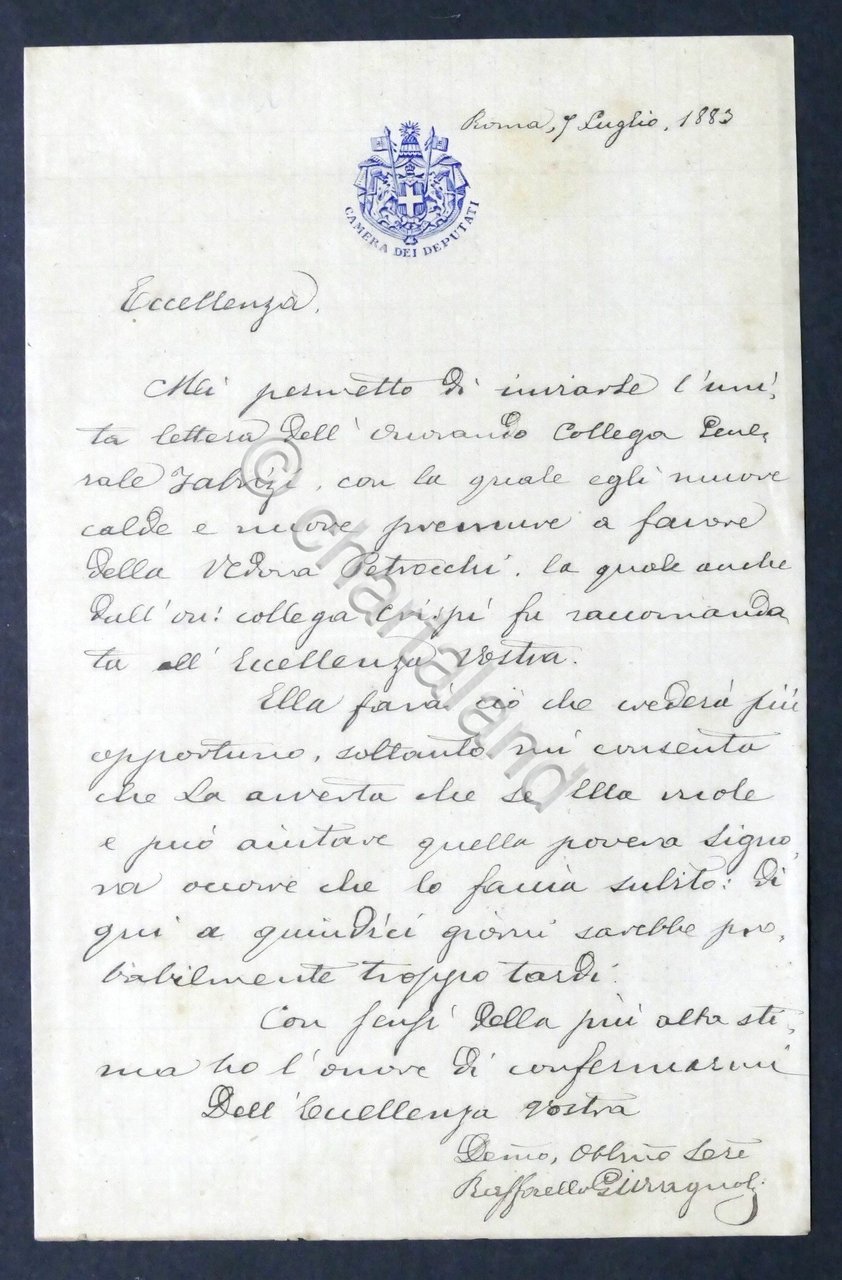 Roma, 7 Luglio, 1883
CAMERA DEI DEPUTATI
Eccellenza.
Mi permetto di inviarle l'uni-
ta lettera dell' onorando Collega Gene-
rale Fabrizi, con la quale egli muove
calde e nuove premure a favore
della Vedova Petrocchi, la quale anche
dall'on: collega Crispi fu raccomanda
ta all' Eccellenza Vostra.
Ella farà ciò che crederà più
opportuno, soltanto mi consenta
che La avverta che se Ella vuole
e può aiutare quella povera Signo-
ra occorre che lo faccia subito: di
qui a quindici giorni sarebbe pro-
babilmente troppo tardi.
Con sensi della più alta sti-
ma ho l'onore di confermarmi
Dell' Eccellenza Vostra
Demo, Obblmo
Raffaello
© chartaland